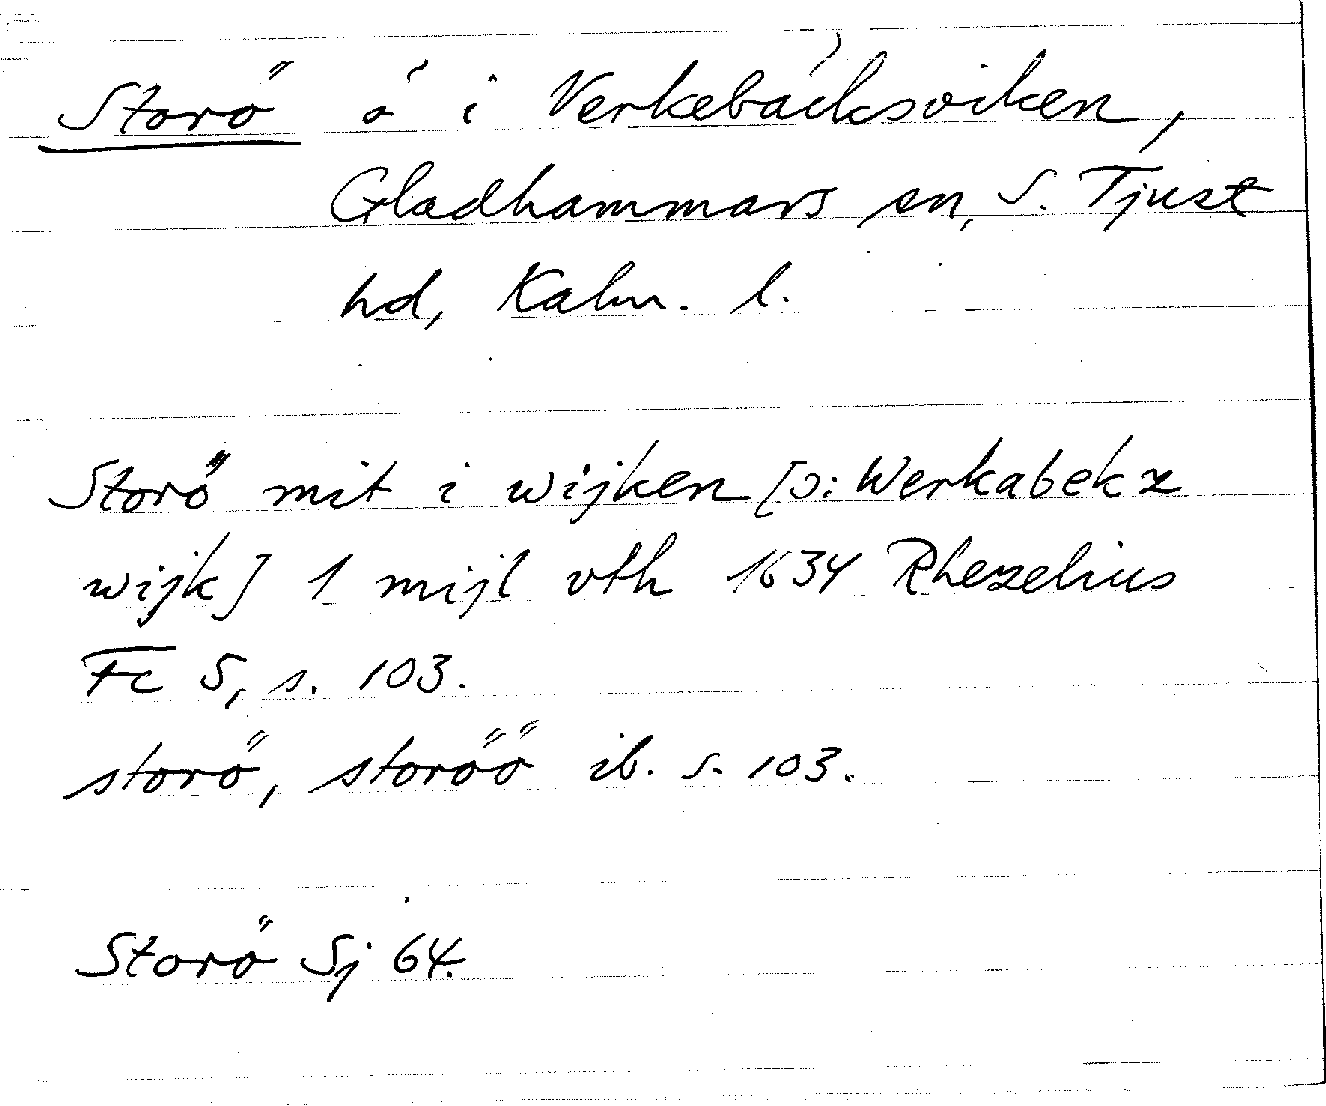 Storö ö i Verkebäcksviken,
Gladhammars sn, S. Tjust
hd, Kalm. l.
Storö mit i wijken [ɔ: Werkabekz
wijk] 1 mijl vth 1634 Rhezelius
Fc 5, s. 103.
storö, storöö ib. s. 103.
Storö Sj 64.